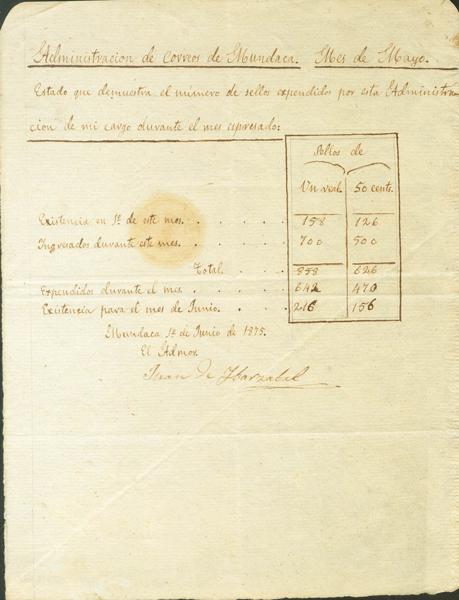 Administracion de Correos de Mundaca. Mes de Mayo.
Estado que demuestra el número de sellos expendidos por esta Administra
cion de mi cargo durante el mes espresado:
Sellos de
Un real 50 cents.
Existencia en 1º de este mes. 158 126
Ingresados durante este mes. 700 500
Total. 858 626
Expendidos durante el mes. 642 470
Existencia para el mes de Junio. 216 156
Mundaca 1º de Junio de 1875.
El Admor.
Juan de Ybarzabal